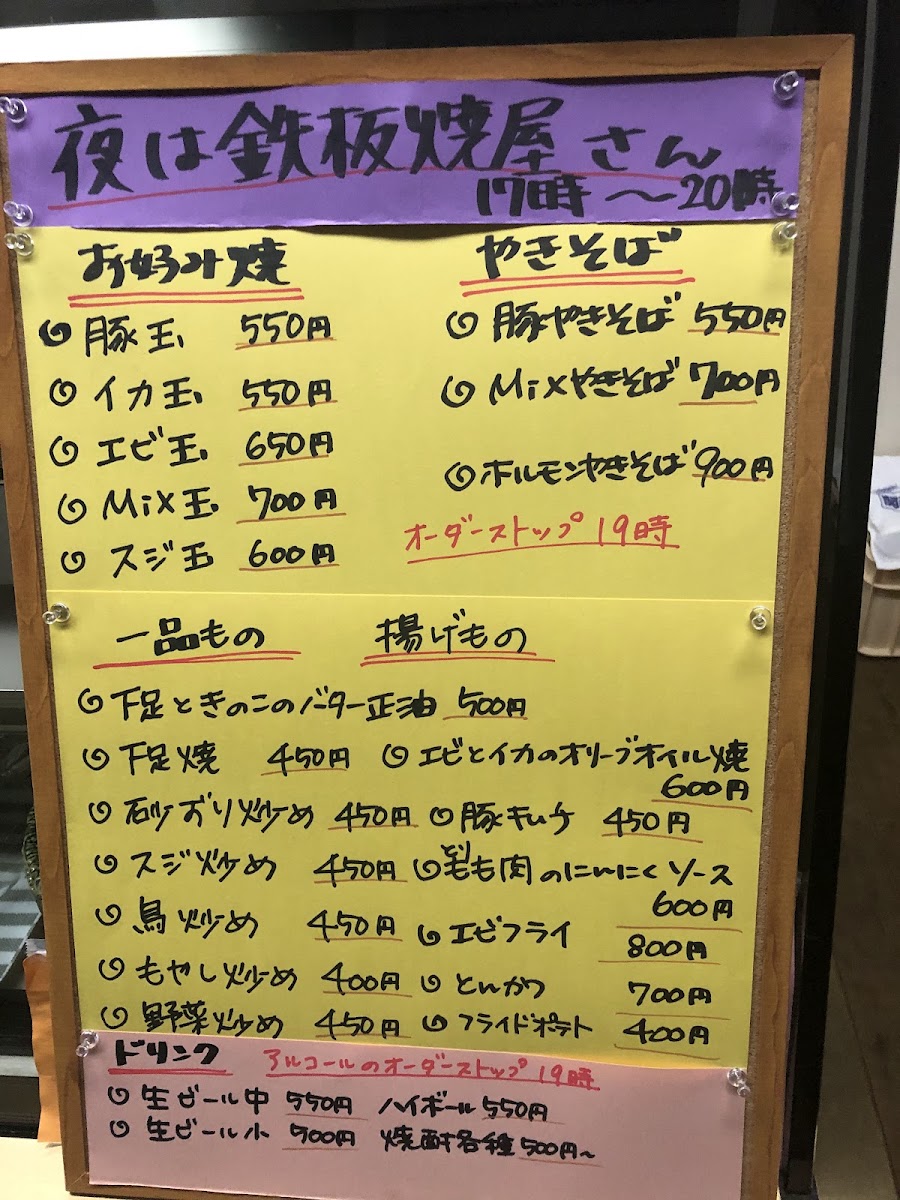 夜は鉄板焼屋さん
17時～20時
お好み焼
豚玉 550円
イカ玉 550円
エビ玉 650円
Mix玉 700円
スジ玉 600円
やきそば
豚やきそば 550円
Mixやきそば 700円
ホルモンやきそば 900円
オーダーストップ 19時
一品もの 揚げもの
下足ときのこのバター正油 500円
下足焼 450円
エビとイカのオリーブオイル焼
600円
砂ずり炒め 450円
豚キムチ 450円
スジ炒め 450円
とりもも肉のにんにくソース
600円
鳥炒め 450円
エビフライ 800円
もやし炒め 400円
とんかつ 700円
野菜炒め 450円
フライドポテト 400円
ドリンク
アルコールのオーダーストップ 19時
生ビール中 550円 ハイボール 550円
生ビール小 500円 焼酎各種 500円～